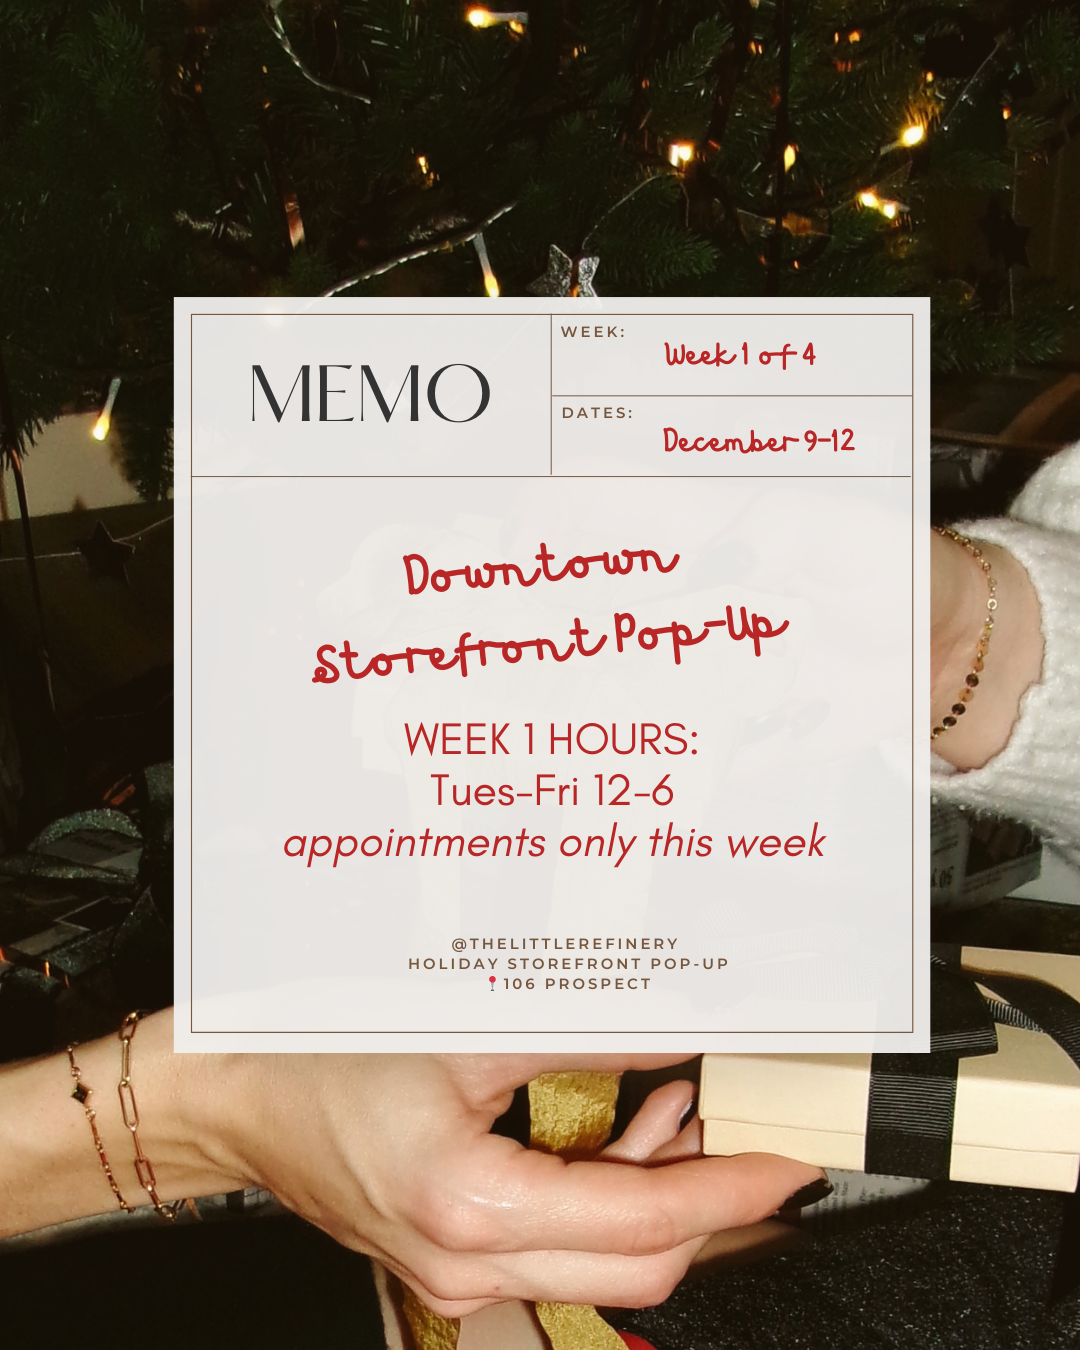 MEMO
WEEK:
Week 1 of 4
DATES:
December 9-12
Downtown
Storefront Pop-Up
WEEK 1 HOURS:
Tues-Fri 12-6
appointments only this week
@THELITTLEREFINERY
HOLIDAY STOREFRONT POP-UP
📍106 PROSPECT